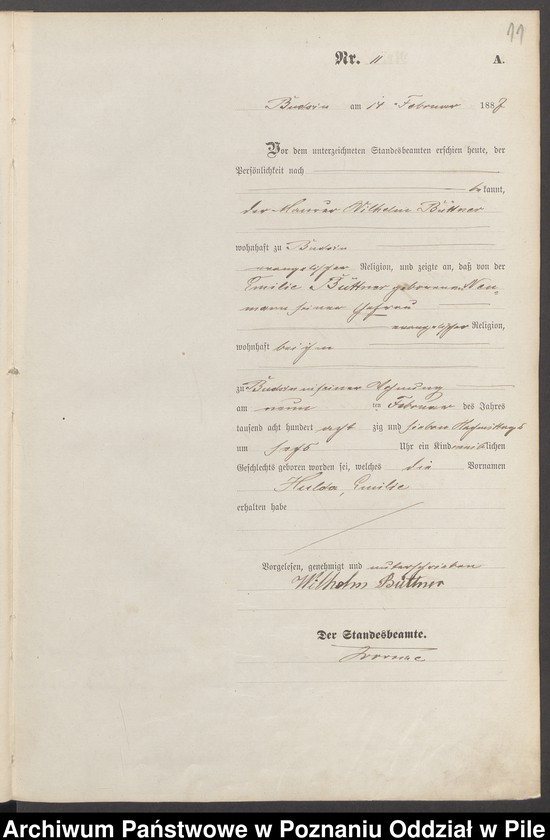 11
Nr. 11 A.
Budsin am 14 Februar 1887
Vor dem unterzeichneten Standesbeamten erschien heute, der
Persönlichkeit nach
bekannt,
der Maurer Wilhelm Büttner
wohnhaft zu Budsin
evangelischer Religion, und zeigte an, daß von der
Emilie Büttner geborenen Neu-
mann seiner Ehefrau
evangelischer Religion,
wohnhaft bei ihm
zu Budsin in seiner Wohnung
am neun ten Februar des Jahres
tausend acht hundert acht zig und sieben Nachmittags
um sechs Uhr ein Kind weiblichen
Geschlechts geboren worden sei, welches die Vornamen
Hulda, Emilie
erhalten habe
Vorgelesen, genehmigt und unterschrieben
Wilhelm Büttner
Der Standesbeamte.
Archiwum Państwowe w Poznaniu Oddział w Pile